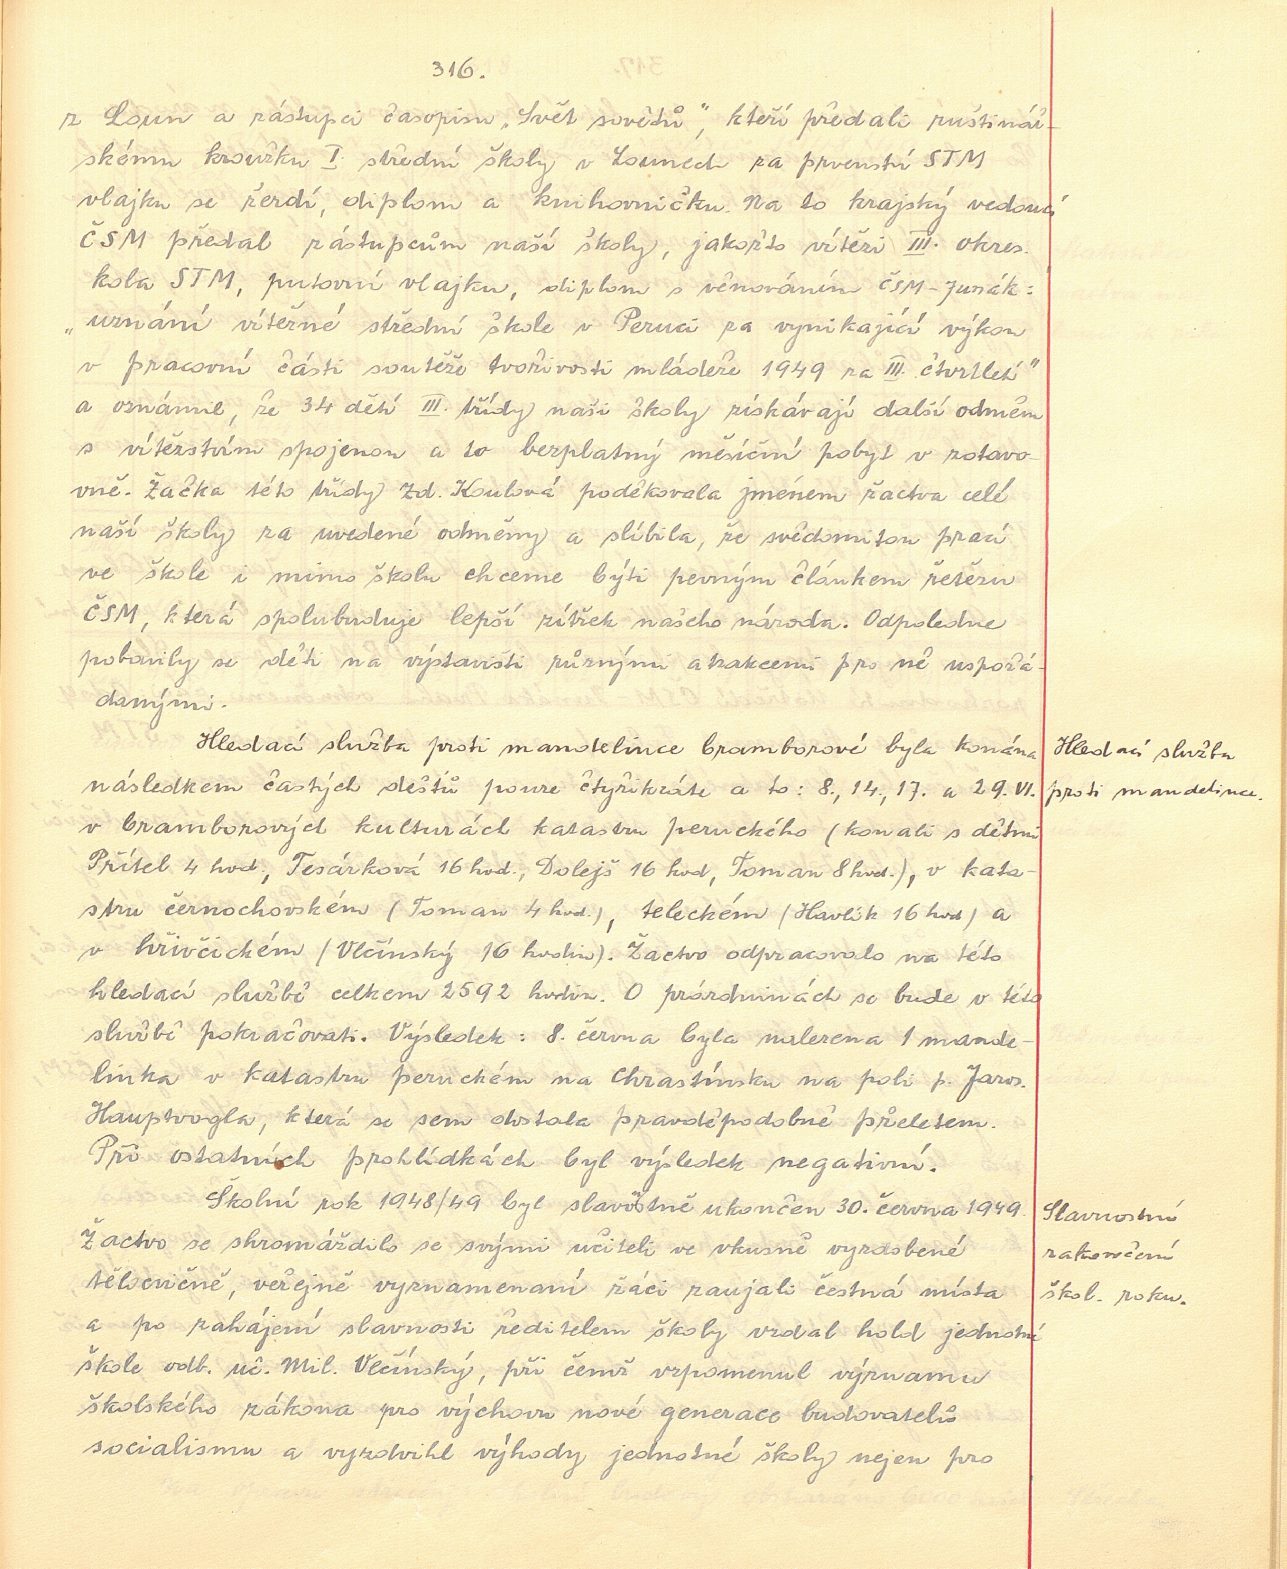 316.
z Loun a zástupci časopisu „Svět sovětů", kteří předali ruštinář-
skému kroužku I. střední školy v Lounech za prvenství STM
vlajku se žerdí, diplom a knihovničku. Na to krajský vedoucí
ČSM předal zástupcům naší školy, jakožto vítězi III. okres.
kola STM, putovní vlajku, diplom s věnováním ČSM-Junák:
„uznání vítězné střední škole v Peruci za vynikající výkon
v pracovní části soutěže tvořivosti mládeže 1949 za III. čtvrtletí"
a oznámil, že 34 dětí III. třídy naší školy získávají další odměnu
s vítězstvím spojenou a to bezplatný měsíční pobyt v zotavo-
vně. Žačka této třídy Zd. Koulová poděkovala jménem žactva celé
naší školy za uvedené odměny a slíbila, že svědomitou prací
ve škole i mimo školu chceme býti pevným článkem řetězu
ČSM, která spolubuduje lepší zítřek našeho národa. Odpoledne
pobavily se děti na výstavišti různými atrakcemi pro ně uspořá-
danými.
Hledací služba proti mandelince bramborové byla konána
Hledací služba
následkem častých dešťů pouze čtyřikráte a to: 8., 14., 17. a 29. VI.
proti mandelince.
v bramborových kulturách katastru peruckého (konali s dětmi
Přítel 4 hod., Tesárková 16 hod., Dolejš 16 hod, Toman 8 hod.), v kata-
stru černochovském (Toman 4 hod.), teleckém (Havlík 16 hod) a
v hřivčickém (Vlčínský 16 hodin). Žactvo odpracovalo na této
hledací službě celkem 2592 hodin. O prázdninách se bude v této
službě pokračovati. Výsledek: 8. června byla nalezena 1 mande-
linka v katastru peruckém na Chrastínsku na poli p. Jaros.
Hauptvogla, která se sem dostala pravděpodobně přeletem.
Při ostatních prohlídkách byl výsledek negativní.
Školní rok 1948/49 byl slavostně ukončen 30. června 1949.
Slavnostní
Žactvo se shromáždilo se svými učiteli ve vkusně vyzdobené
zakončení
tělocvičně, veřejně vyznamenaní žáci zaujali čestná místa
škol. roku.
a po zahájení slavnosti ředitelem školy vzdal hold jednotné
škole odb. uč. Mil. Vlčínský, při čemž vzpomenul významu
školského zákona pro výchovu nové generace budovatelů
socialismu a vyzdvihl výhody jednotné školy nejen pro